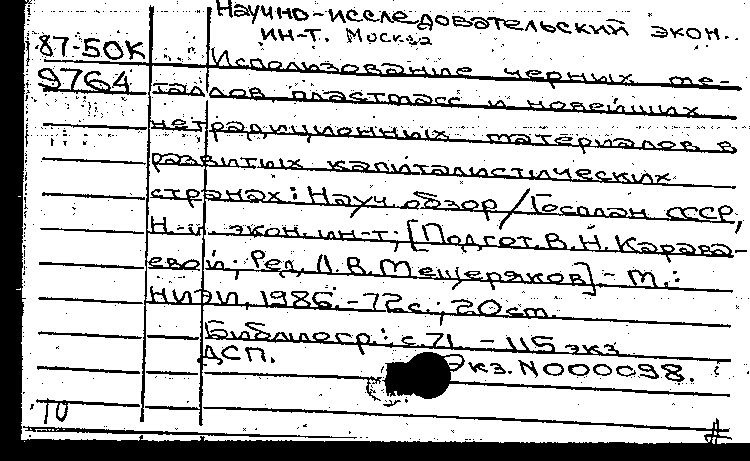 Научно-исследовательский экон.
ин-т. Москва
87-50К Использование черных ме-
9764 таллов, пластмасс и новейших
нетрадиционных материалов в
развитых капиталистических
странах: Науч. обзор / Госплан СССР,
Н.-и. экон. ин-т; [Подгот. В.Н. Карава-
евой; Ред. Л.В. Мещеряков]. - М.:
НИЭИ, 1986. - 72 с.; 20 см.
Библиогр.: с. 71. - 115 экз
ДСП. Экз. N000098.
10